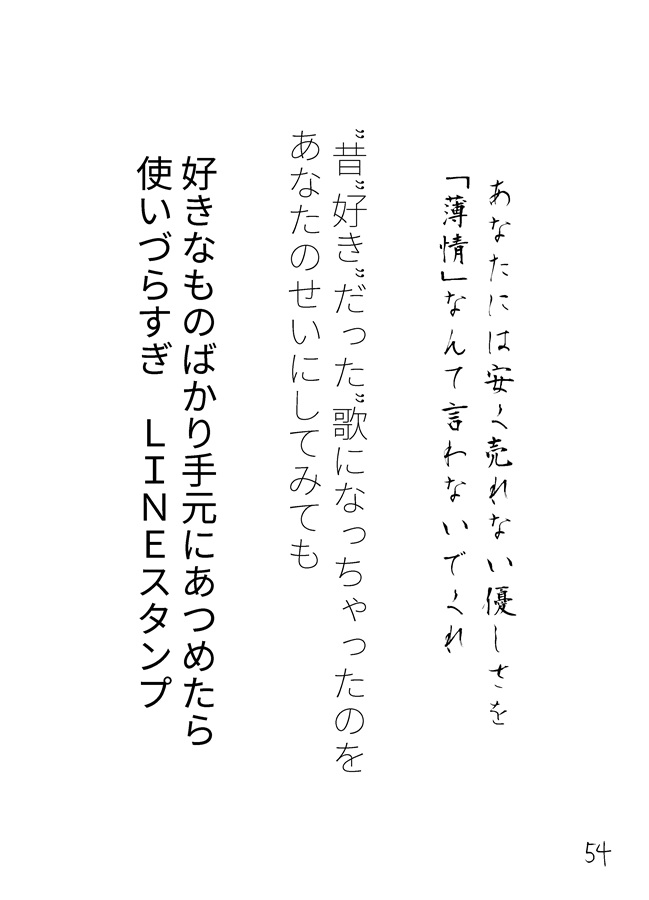 あなたには安く売れない優しさを
「薄情」なんて言わないでくれ
”昔”好き”だった”歌になっちゃったのを
あなたのせいにしてみても
好きなものばかり手元にあつめたら
使いづらすぎ　ＬＩＮＥスタンプ
54